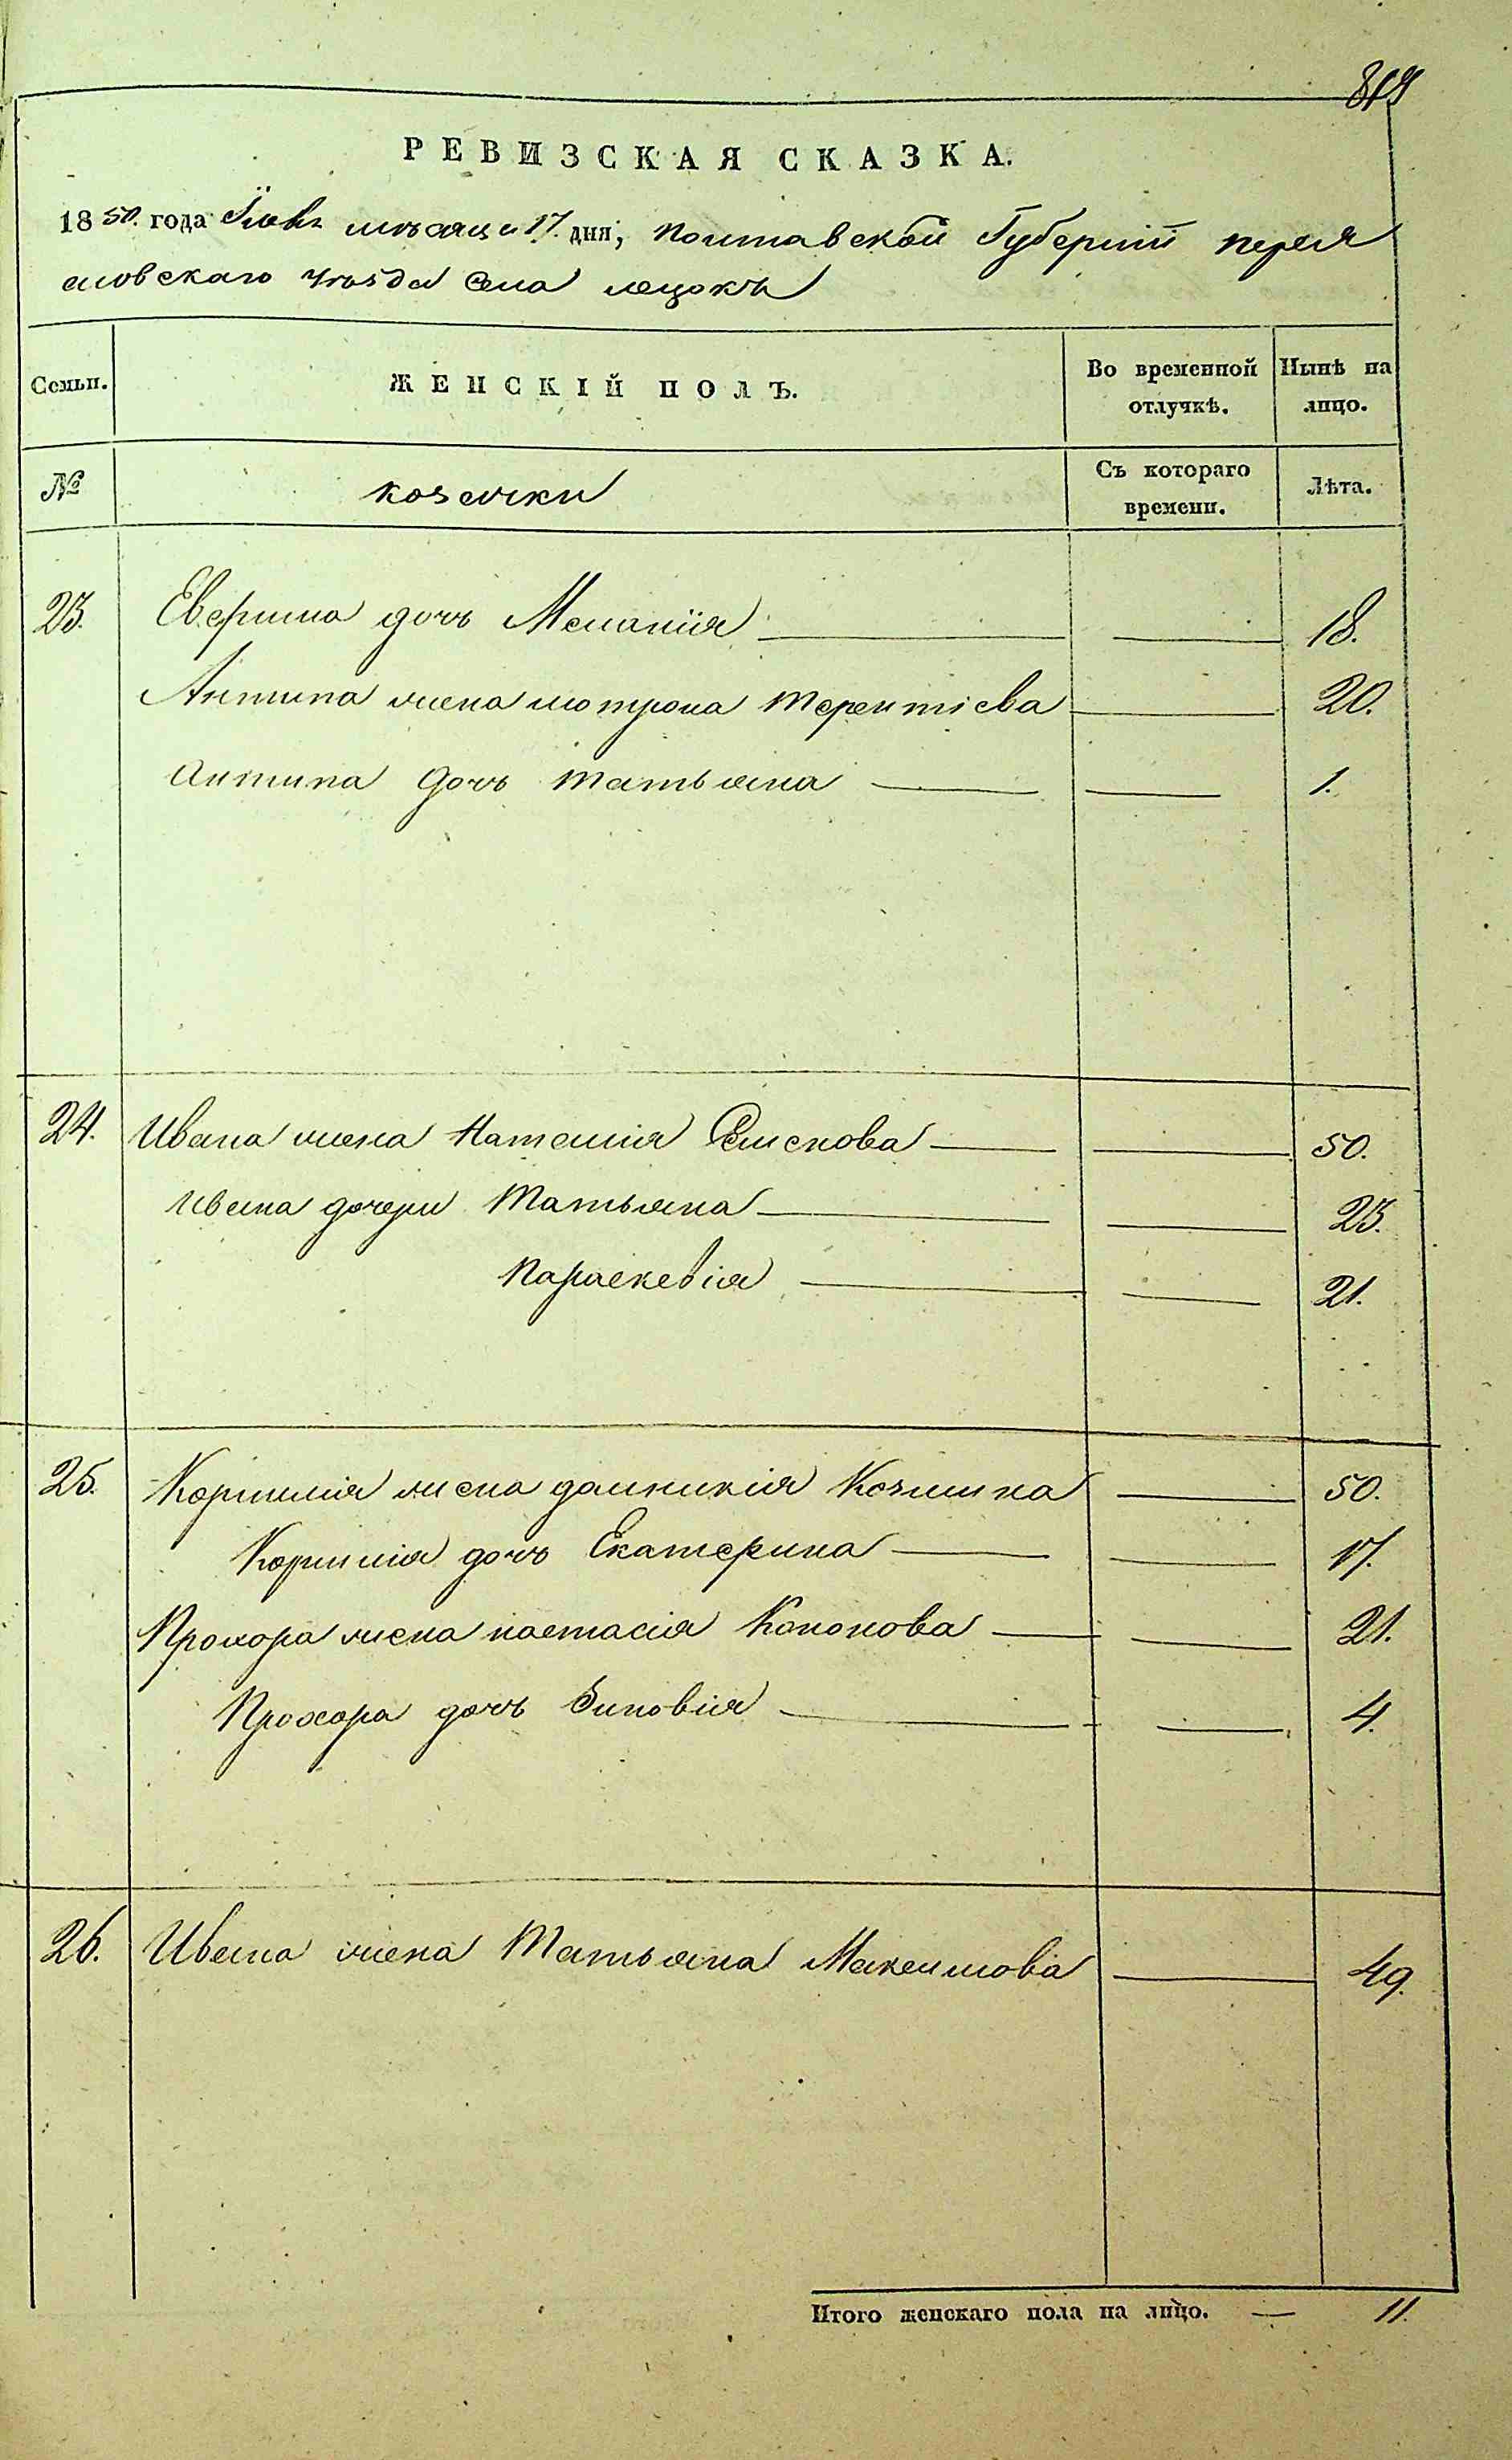 819
РЕВИЗСКАЯ СКАЗКА.
1850. года Їюня месяца 17. дня, Полтавской Губернїи перея
словскаго уѣзда села лецокъ
Семьи. ЖЕНСКІЙ ПОЛЪ. Во временной отлучкѣ. Нынѣ на лицо.
№ козачки Съ котораго времени. Лѣта.
23. дочь Меланїя 18.
Антипа жена мотрона терентіева 20.
антипа дочь татьяна 1.
24. Ивана жена Наталия Семенова 50.
ивана дочери Татьяна 23.
параскевія 21.
25. Корнилія жена домникія Козмина 50.
Корнилія дочь Екатерина 17.
Прохора жена настасія Кононова 21.
Прохора дочь Зиновія 4.
26. Ивана жена Татьяна Максимова 49.
Итого женскаго пола на лицо. — 11.